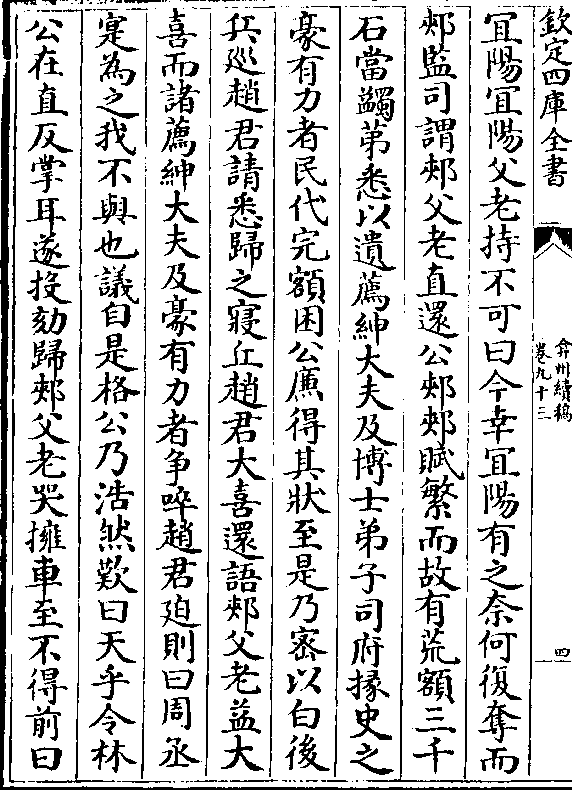 欽定四庫全書
弇州續稿
卷九十三
四
宜陽宜陽父老持不可曰今幸宜陽有之奈何復奪而
郟監司謂郟父老直還公郟郟賦繁而故有荒額三千
石當蠲第悉以遺薦紳大夫及博士弟子司府掾史之
豪有力者民代完額困公廉得其狀至是乃密以白後
兵巡趙君請悉歸之寢丘趙君大喜還語郟父老益大
喜而諸薦紳大夫及豪有力者争啐趙君廹則曰周丞
寔為之我不與也議自是格公乃浩然歎曰天乎令林
公在直反掌耳遂投劾歸郟父老哭擁車至不得前曰